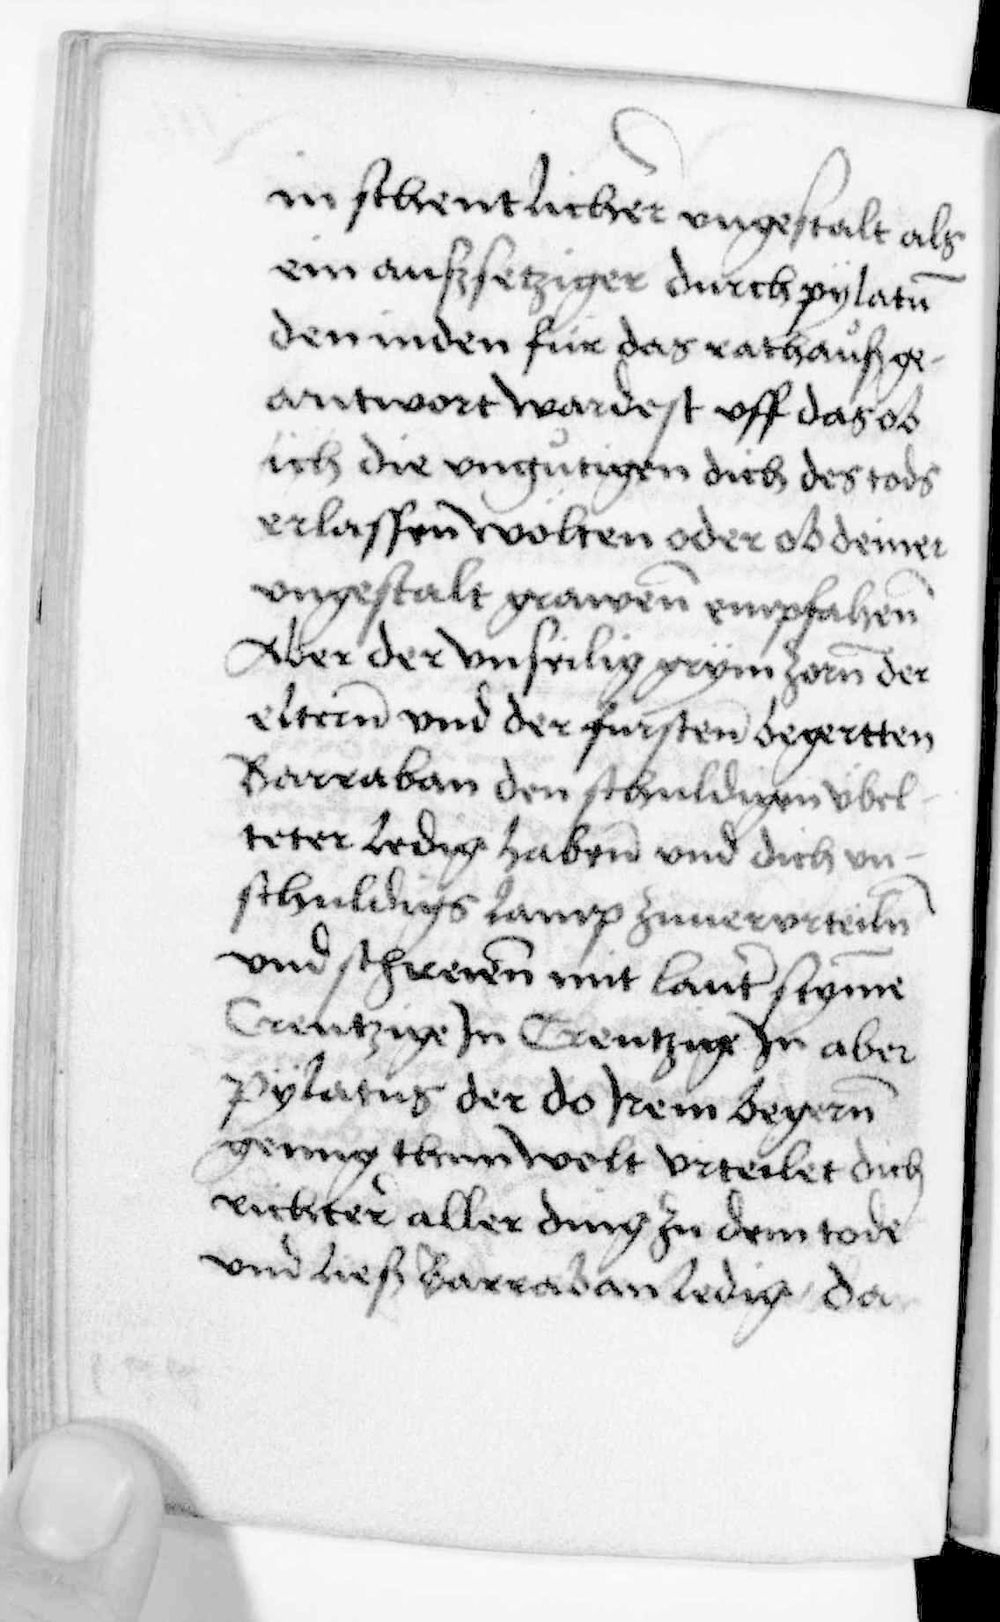 in schentlicher ungestalt als
ein auszsetziger durch pÿlatū
den iuden für das rathaůsz ge-
antwort wardest uff das ob
sich die ungůtigen dich des tods
erlassen̄ wölten oder ob deiner
ungestalt grawen̄ empfahen̄
Aber der unseilig grÿm zorn̄ der
eltern̄ und der fursten̄ begertten
Barraban den schuldigen übel-
teter ledig haben̄ und dich un-
schuldigs lamp zuuerurteiln̄
und schreien̄ mit laut̄ stym̄e
Creutzige Jn Creutzige Jn aber
Pÿlatus der do Jrem begern̄
genug thun wolt urteilet dich
richter aller ding zu dem tode
und liesz Barraban ledig da